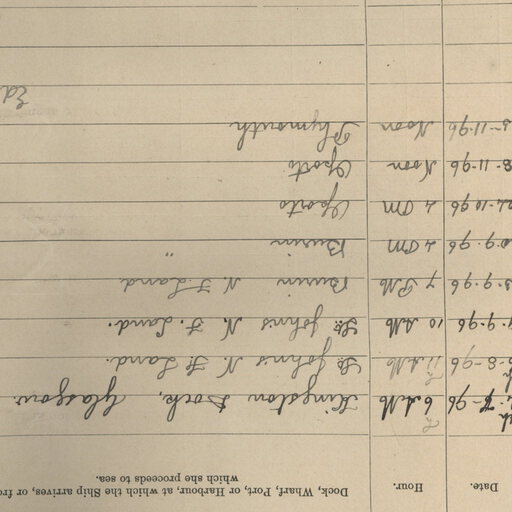 Date. Hour. Dock, Wharf, Port, or Harbour, at which the Ship arrives, or
which she proceeds to sea.
96 6 AM Kingston Dock, Glasgow.
8-96 11 AM St. John's N. F. Land.
9.96 10 AM St. John's N. F. Land.
9.96 7 PM Burin N. F. Land
9.96 2 PM Burin "
10.96 2 PM Oporto
8-11-96 Noon Oporto
11-96 Noon Plymouth
Ed